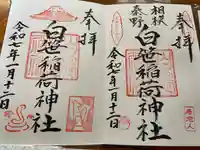 奉拝
相模
秦野
白笹稲荷神社
令和七年一月十二日
奉拝
白笹稲荷神社
令和七年一月十二日